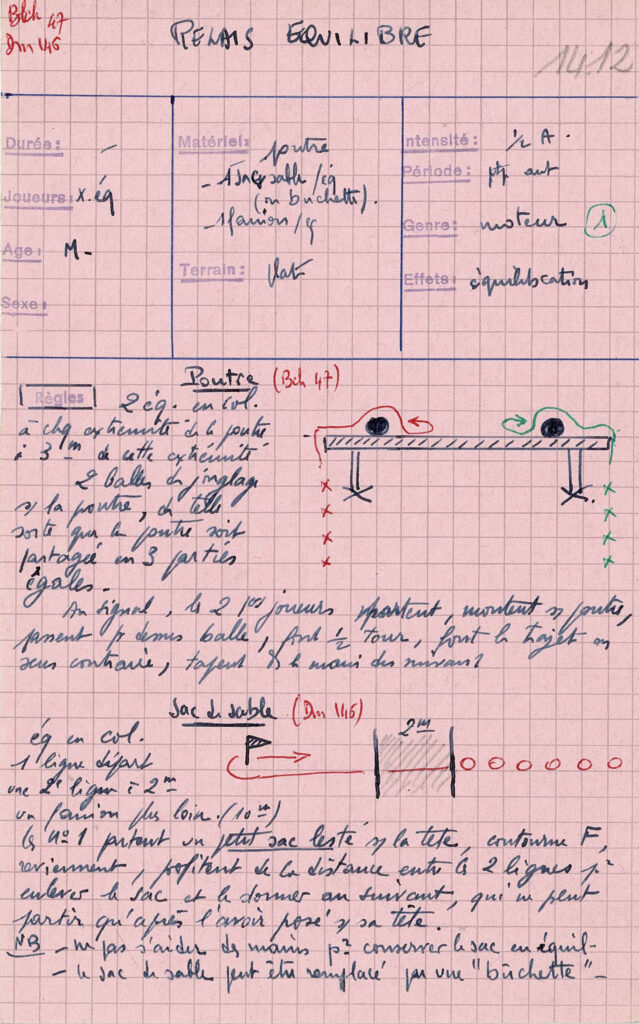 Bch 47
Dm 146
RELAIS EQUILIBRE
14.12
Durée: -
Joueurs: x.éq
Age: M-
Sexe:
Matériel: poutre
- 1 sac sable /éq
(ou bûchette).
- 1 fanion /éq
Terrain: Plat
Intensité: 1/2 A.
Période: ptps aut
Genre: moteur 1
Effets: équilibration
Poutre (Bch 47)
Règles
2 éq. en col.
à chq extrémité de la poutre
à 3 m de cette extrémité
2 balles de jonglage
s/ la poutre, de telle
sorte que la poutre soit
partagée en 3 parties
égales.
Au signal, les 2 1ers joueurs partent, montent s/ poutre,
passent p dessus balle, font 1/2 tour, font le trajet en
sens contraire, tapent ds la main des suivants
Sac de sable (Dm 146)
2m
éq en col.
1 ligne départ
une 2e ligne à 2m
un fanion plus loin. (10m)
les n°1 partent un petit sac lesté s/ la tête, contourne F,
reviennent, profitent de la distance entre les 2 lignes pr
enlever le sac et le donner au suivant, qui ne peut
partir qu'après l'avoir posé s/ sa tête.
NB - ne pas s'aider des mains pr conserver le sac en équil-
- le sac de sable peut être remplacé par une "bûchette"-